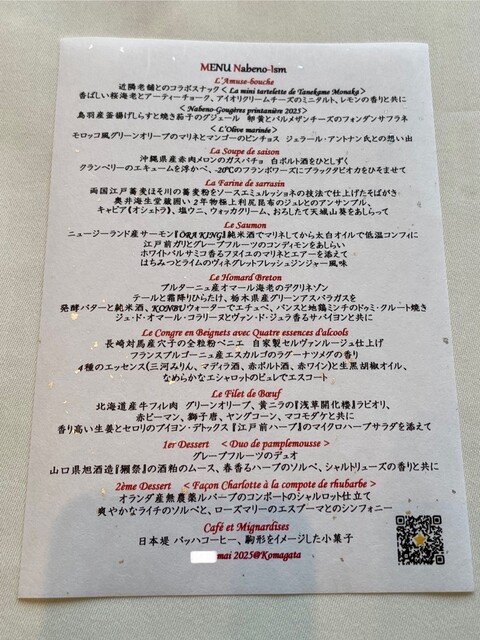 MENU Nabeno-Ism
L'Amuse-bouche
近隣老舗とのコラボスナック < La mini tartelette de Tanekame Monaka>
香ばしい桜海老とアーティーチョーク、アイオリクリームチーズのミニタルト、レモンの香りと共に
< Nabeno-Gougères printanière 2025 >
鳥羽産釜揚げしらすと焼き茄子のグジェール 卵黄とパルメザンチーズのフォンダンサフラネ
< L'Olive marinée>
モロッコ風グリーンオリーブのマリネとマンゴーのピンチョス ジェラール・アントナン氏との想い出
La Soupe de saison
沖縄県産赤肉メロンのガスパチョ 白ポルト酒をひとしずく
クランベリーのエキュームを浮かべ、-20℃のフランボワーズにブラックタピオカをひそませて
La Farine de sarrasin
両国江戸蕎麦ほそ川の蕎麦粉をソースエミュルッショネの技法で仕上げたそばがき
奥井海生堂蔵囲い2年物極上利尻昆布のジュレとのアンサンブル、
キャビア(オシェトラ)、塩ウニ、ウォッカクリーム、おろしたて天城山葵をあしらって
Le Saumon
ニュージーランド産サーモン『ŌRA KING』純米酒でマリネしてから太白オイルで低温コンフィに
江戸前ガリとグレープフルーツのコンディモンをあしらい
ホワイトバルサミコ香るフヌイユのマリネとエアーを添えて
はちみつとライムのヴィネグレットフレッシュジンジャー風味
Le Homard Breton
ブルターニュ産オマール海老のデクリネゾン
テールと霜降りひらたけ、栃木県産グリーンアスパラガスを
発酵バターと純米酒、KONBUウォーターでエチュベ、パンスと地鶏ミンチのドゥミ・クルート焼き
ジュ・ド・オマール・コラリーヌとヴァン・ド・ジュラ香るサバイヨンと共に
Le Congre en Beignets avec Quatre essences d'alcools
長崎対馬産穴子の全粒粉ベニエ 自家製セルヴァンルージュ仕上げ
フランスブルゴーニュ産エスカルゴのラグーナツメグの香り
4種のエッセンス(三河みりん、マディラ酒、赤ポルト酒、赤ワイン)と生黒胡椒オイル、
なめらかなエシャロットのピュレでエスコート
Le Filet de Bœuf
北海道産牛フィレ肉 グリーンオリーブ、黄ニラの『浅草開化楼』ラビオリ、
赤ピーマン、獅子唐、ヤングコーン、マコモダケと共に
香り高い生姜とセロリのブイヨン・デトックス 『江戸前ハーブ』のマイクロハーブサラダを添えて
1er Dessert < Duo de pamplemousse >
グレープフルーツのデュオ
山口県旭酒造『獺祭』の酒粕のムース、春香るハーブのソルベ、シャルトリューズの香りと共に
2ème Dessert < Façon Charlotte à la compote de rhubarbe >
オランダ産無農薬ルバーブのコンポートのシャルロット仕立て
爽やかなライチのソルベと、ローズマリーのエスプーマとのシンフォニー
Café et Mignardises
日本堤 バッハコーヒー、駒形をイメージした小菓子
mai 2025@Komagata